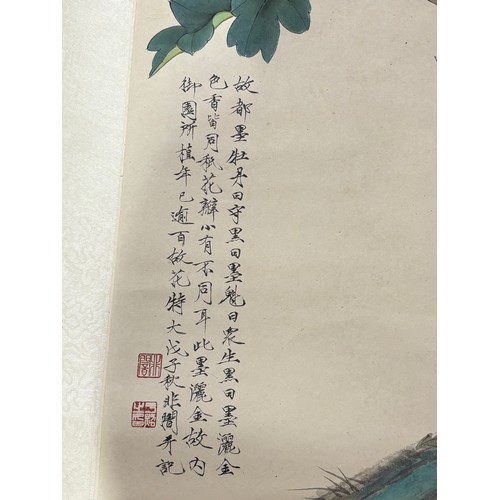 故都墨牡丹曰守黑曰墨魁曰衆生黑曰墨灑金
色香皆同秖花瓣小有不同耳此墨灑金故内
御園所植年已逾百故花特大戊子秋非闇并記